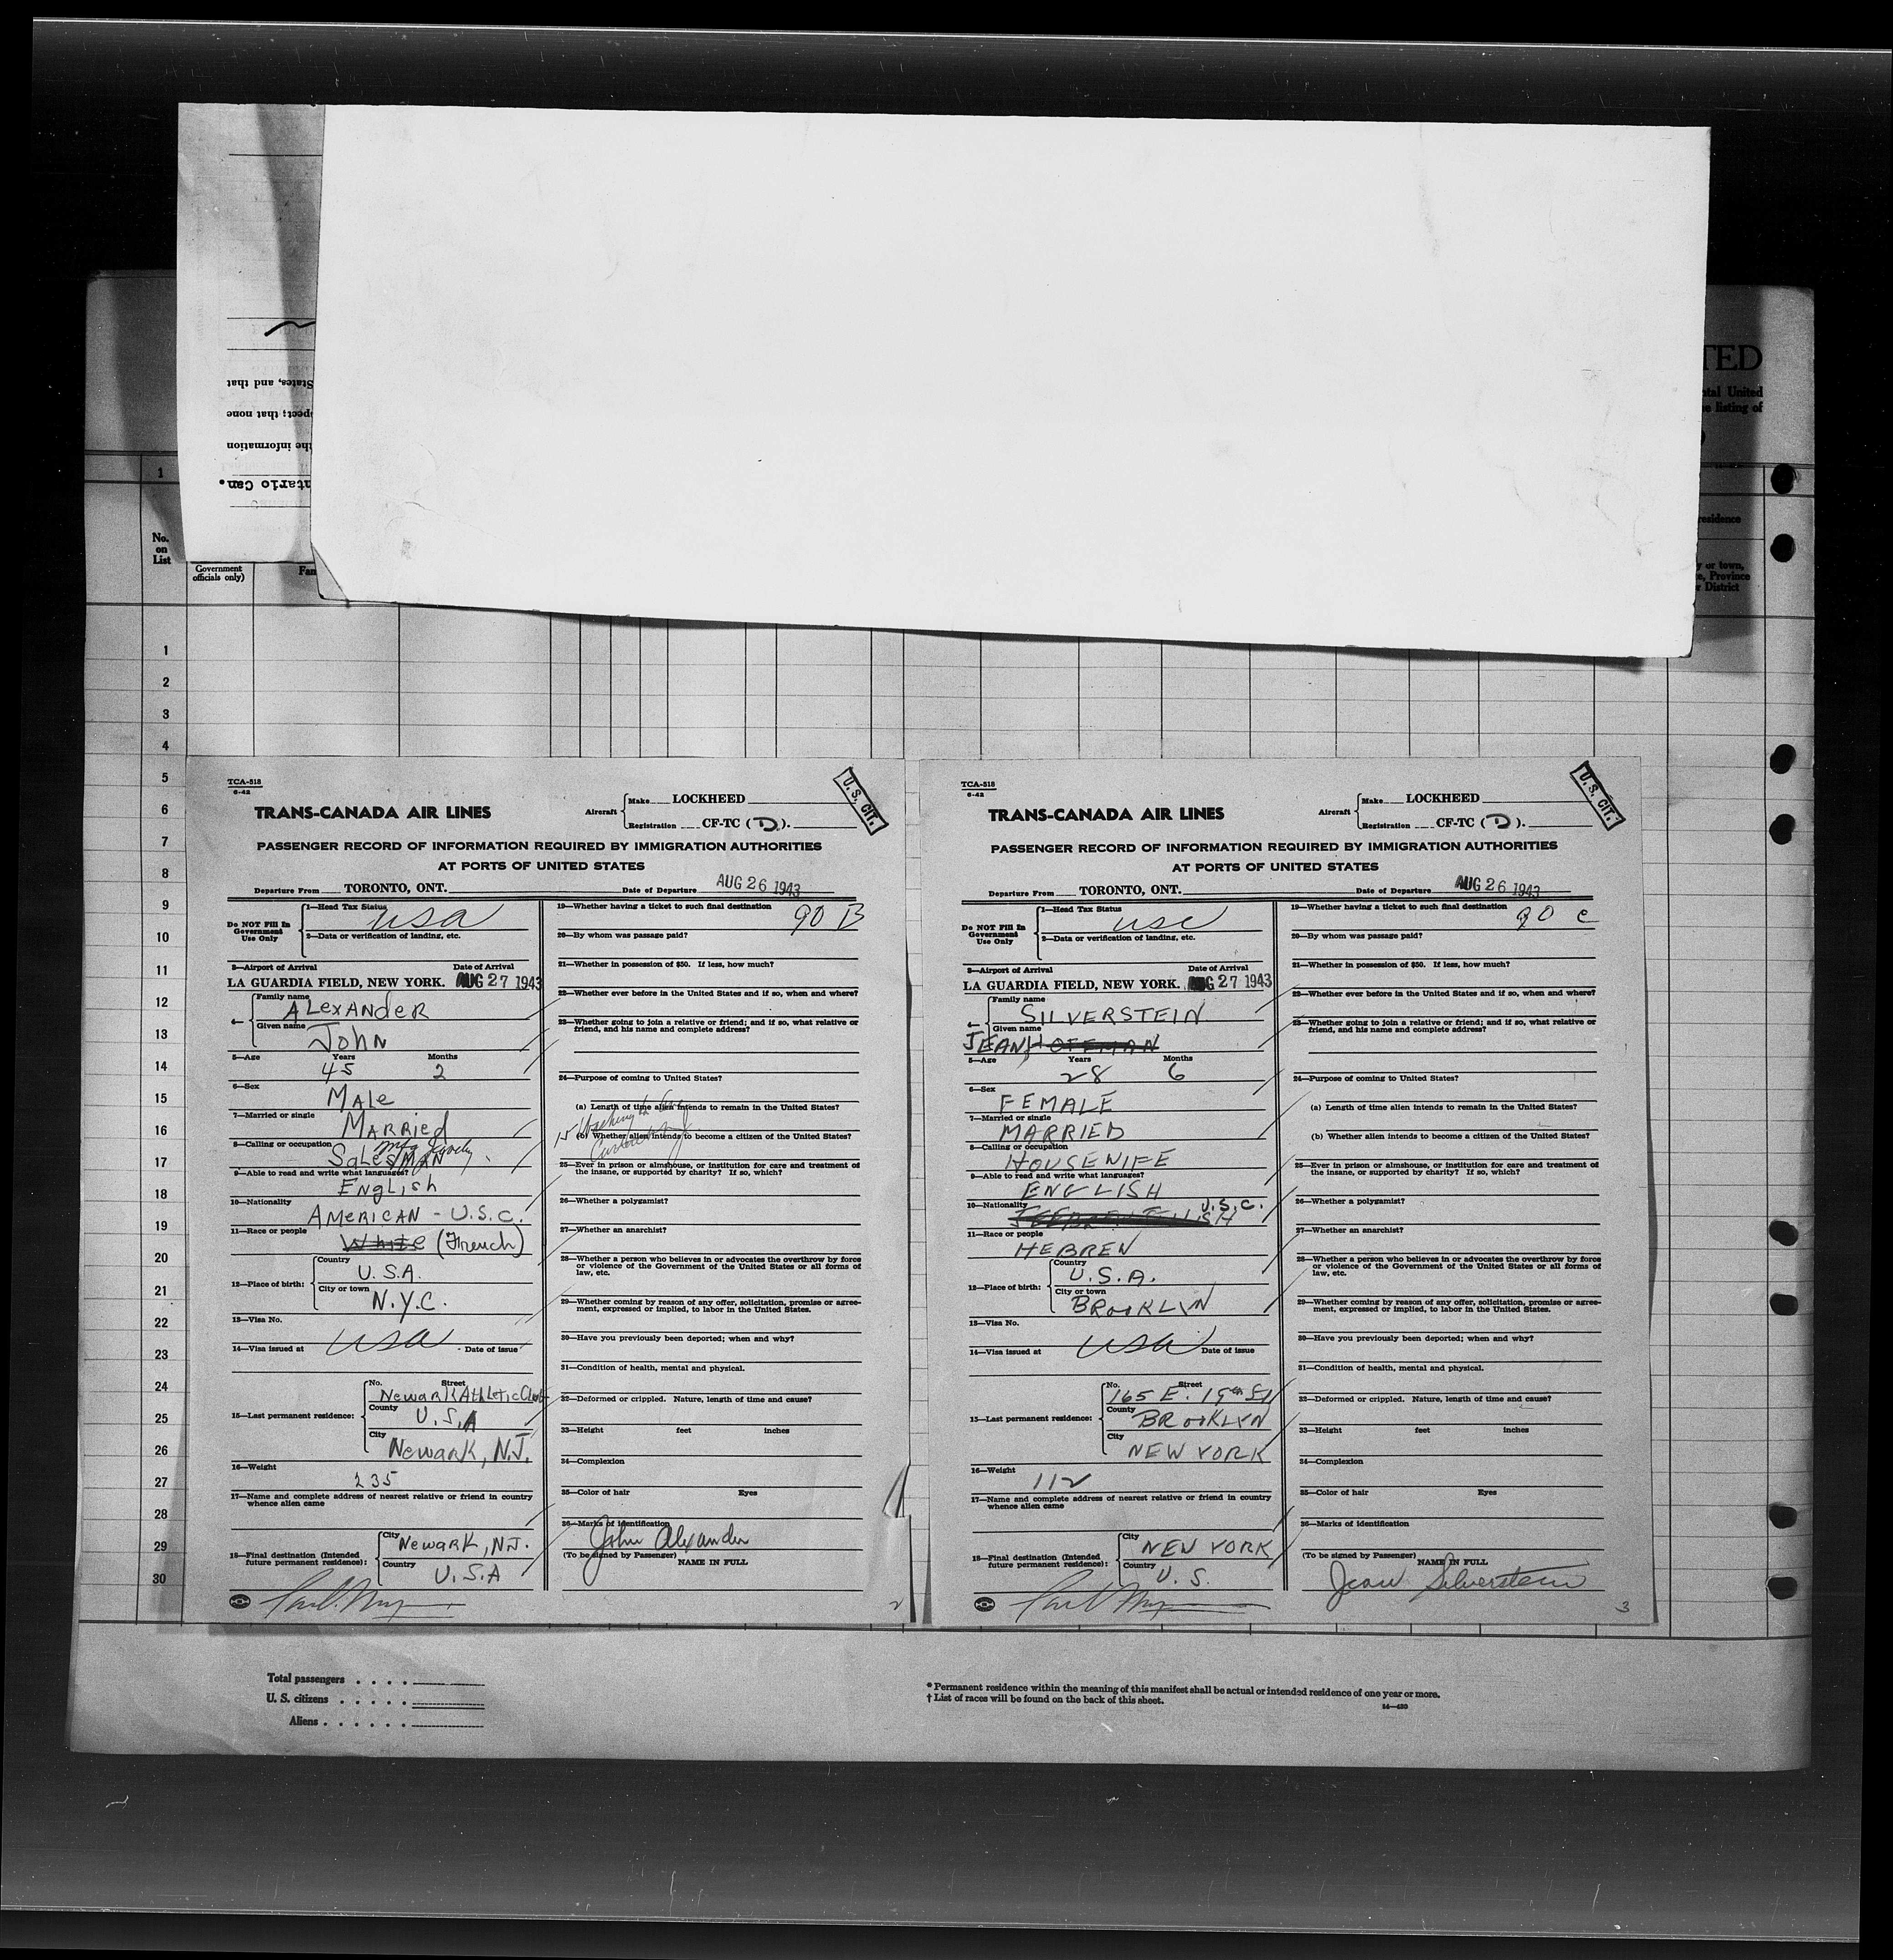 TED
ntal United
e listing of
States, and that
pect; that none
the information
ntario Can.
1
No.
on
List
Government
officials only)
Fam
residence
y or town,
e, Province
r District
1
2
3
4
5
6
7
8
9
10
11
12
13
14
15
16
17
18
19
20
21
22
23
24
25
26
27
28
29
30
TCA-518
6-42
TRANS-CANADA AIR LINES
Aircraft
Make LOCKHEED
Registration CF-TC (D).
U.S. CIT.
PASSENGER RECORD OF INFORMATION REQUIRED BY IMMIGRATION AUTHORITIES
AT PORTS OF UNITED STATES
Departure From TORONTO, ONT. Date of Departure AUG 26 1943
Do NOT Fill In
Government
Use Only
1—Head Tax Status usa
2—Data or verification of landing, etc.
3—Airport of Arrival Date of Arrival
LA GUARDIA FIELD, NEW YORK. AUG 27 1943
4—
Family name
ALexANdeR
Given name
John
5—Age Years Months
45 2
6—Sex
MALe
7—Married or single
MARRied
8—Calling or occupation
SaLesMAN
9—Able to read and write what languages?
ENgLish
10—Nationality
AMeRICAN - U.S.C.
11—Race or people
White (French)
12—Place of birth:
Country
U.S.A.
City or town
N.Y.C.
13—Visa No.
usa
14—Visa issued at Date of issue
15—Last permanent residence:
No. Street
Newark Athletic Club
County
U.S.A
City
Newark, N.J.
16—Weight
235
17—Name and complete address of nearest relative or friend in country
whence alien came
18—Final destination (Intended
future permanent residence):
City
Newark, N.J.
Country
U.S.A
19—Whether having a ticket to such final destination
90 B
20—By whom was passage paid?
21—Whether in possession of $50. If less, how much?
22—Whether ever before in the United States and if so, when and where?
23—Whether going to join a relative or friend; and if so, what relative or
friend, and his name and complete address?
24—Purpose of coming to United States?
(a) Length of time alien intends to remain in the United States?
(b) Whether alien intends to become a citizen of the United States?
25—Ever in prison or almshouse, or institution for care and treatment of
the insane, or supported by charity? If so, which?
26—Whether a polygamist?
27—Whether an anarchist?
28—Whether a person who believes in or advocates the overthrow by force
or violence of the Government of the United States or all forms of
law, etc.
29—Whether coming by reason of any offer, solicitation, promise or agree-
ment, expressed or implied, to labor in the United States.
30—Have you previously been deported; when and why?
31—Condition of health, mental and physical.
32—Deformed or crippled. Nature, length of time and cause?
33—Height feet inches
34—Complexion
35—Color of hair Eyes
36—Marks of identification
John Alexander
(To be signed by Passenger) NAME IN FULL
2
TCA-518
6-42
TRANS-CANADA AIR LINES
Aircraft
Make LOCKHEED
Registration CF-TC (D).
U.S. CIT.
PASSENGER RECORD OF INFORMATION REQUIRED BY IMMIGRATION AUTHORITIES
AT PORTS OF UNITED STATES
Departure From TORONTO, ONT. Date of Departure AUG 26 1943
Do NOT Fill In
Government
Use Only
1—Head Tax Status usc
2—Data or verification of landing, etc.
3—Airport of Arrival Date of Arrival
LA GUARDIA FIELD, NEW YORK. AUG 27 1943
4—
Family name
SILVERSTEIN
Given name
JEAN HOFFMAN
5—Age Years Months
28 6
6—Sex
FEMALE
7—Married or single
MARRIED
8—Calling or occupation
HOUSEWIFE
9—Able to read and write what languages?
ENGLISH
10—Nationality U.S.C.
11—Race or people
HEBREW
12—Place of birth:
Country
U.S.A.
City or town
BROOKLYN
13—Visa No.
usa
14—Visa issued at Date of issue
15—Last permanent residence:
No. Street
165 E. 19th St
County
BROOKLYN
City
NEW YORK
16—Weight
112
17—Name and complete address of nearest relative or friend in country
whence alien came
18—Final destination (Intended
future permanent residence):
City
NEW YORK
Country
U.S.
19—Whether having a ticket to such final destination
90 C
20—By whom was passage paid?
21—Whether in possession of $50. If less, how much?
22—Whether ever before in the United States and if so, when and where?
23—Whether going to join a relative or friend; and if so, what relative or
friend, and his name and complete address?
24—Purpose of coming to United States?
(a) Length of time alien intends to remain in the United States?
(b) Whether alien intends to become a citizen of the United States?
25—Ever in prison or almshouse, or institution for care and treatment of
the insane, or supported by charity? If so, which?
26—Whether a polygamist?
27—Whether an anarchist?
28—Whether a person who believes in or advocates the overthrow by force
or violence of the Government of the United States or all forms of
law, etc.
29—Whether coming by reason of any offer, solicitation, promise or agree-
ment, expressed or implied, to labor in the United States.
30—Have you previously been deported; when and why?
31—Condition of health, mental and physical.
32—Deformed or crippled. Nature, length of time and cause?
33—Height feet inches
34—Complexion
35—Color of hair Eyes
36—Marks of identification
(To be signed by Passenger) NAME IN FULL
Jean Silverstein
3
Total passengers
U. S. citizens
Aliens
* Permanent residence within the meaning of this manifest shall be actual or intended residence of one year or more.
† List of races will be found on the back of this sheet.
14—420